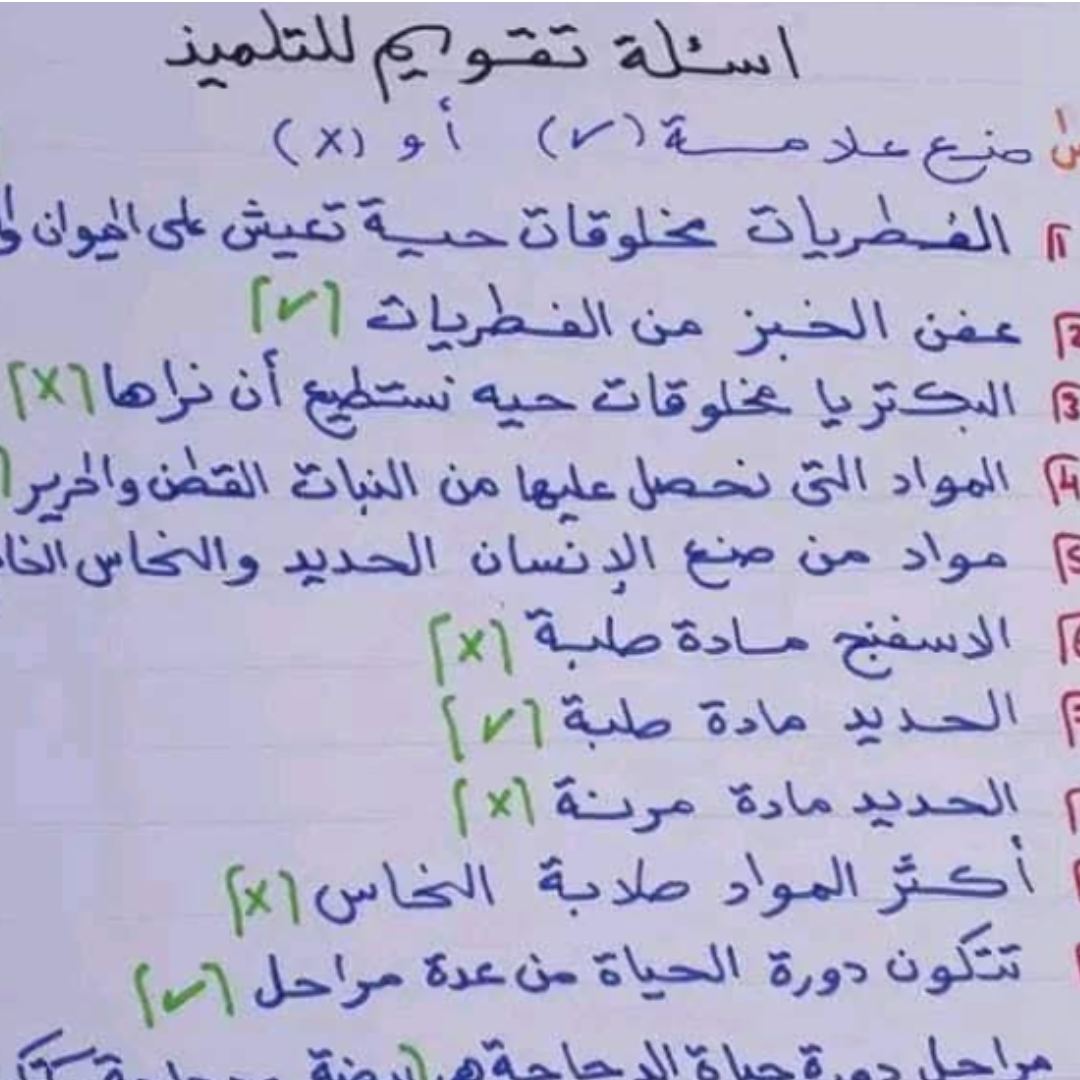 اسئلة تقويم للتلميذ
س١ ضع علامة (✓) أو (x)
1 الفطريات مخلوقات حية تعيش على الحيوان
2 عفن الخبز من الفطريات [✓]
3 البكتريا مخلوقات حيه نستطيع أن نراها [x]
4 المواد التي نحصل عليها من النبات القطن والحرير
5 مواد من صنع الإنسان الحديد والنحاس
6 الاسفنج مادة صلبة [x]
7 الحديد مادة صلبة [✓]
الحديد مادة مرنة [x]
أكثر المواد صلابة النحاس [x]
تتكون دورة الحياة من عدة مراحل [✓]
مراحل دورة حياة الدجاجة هي